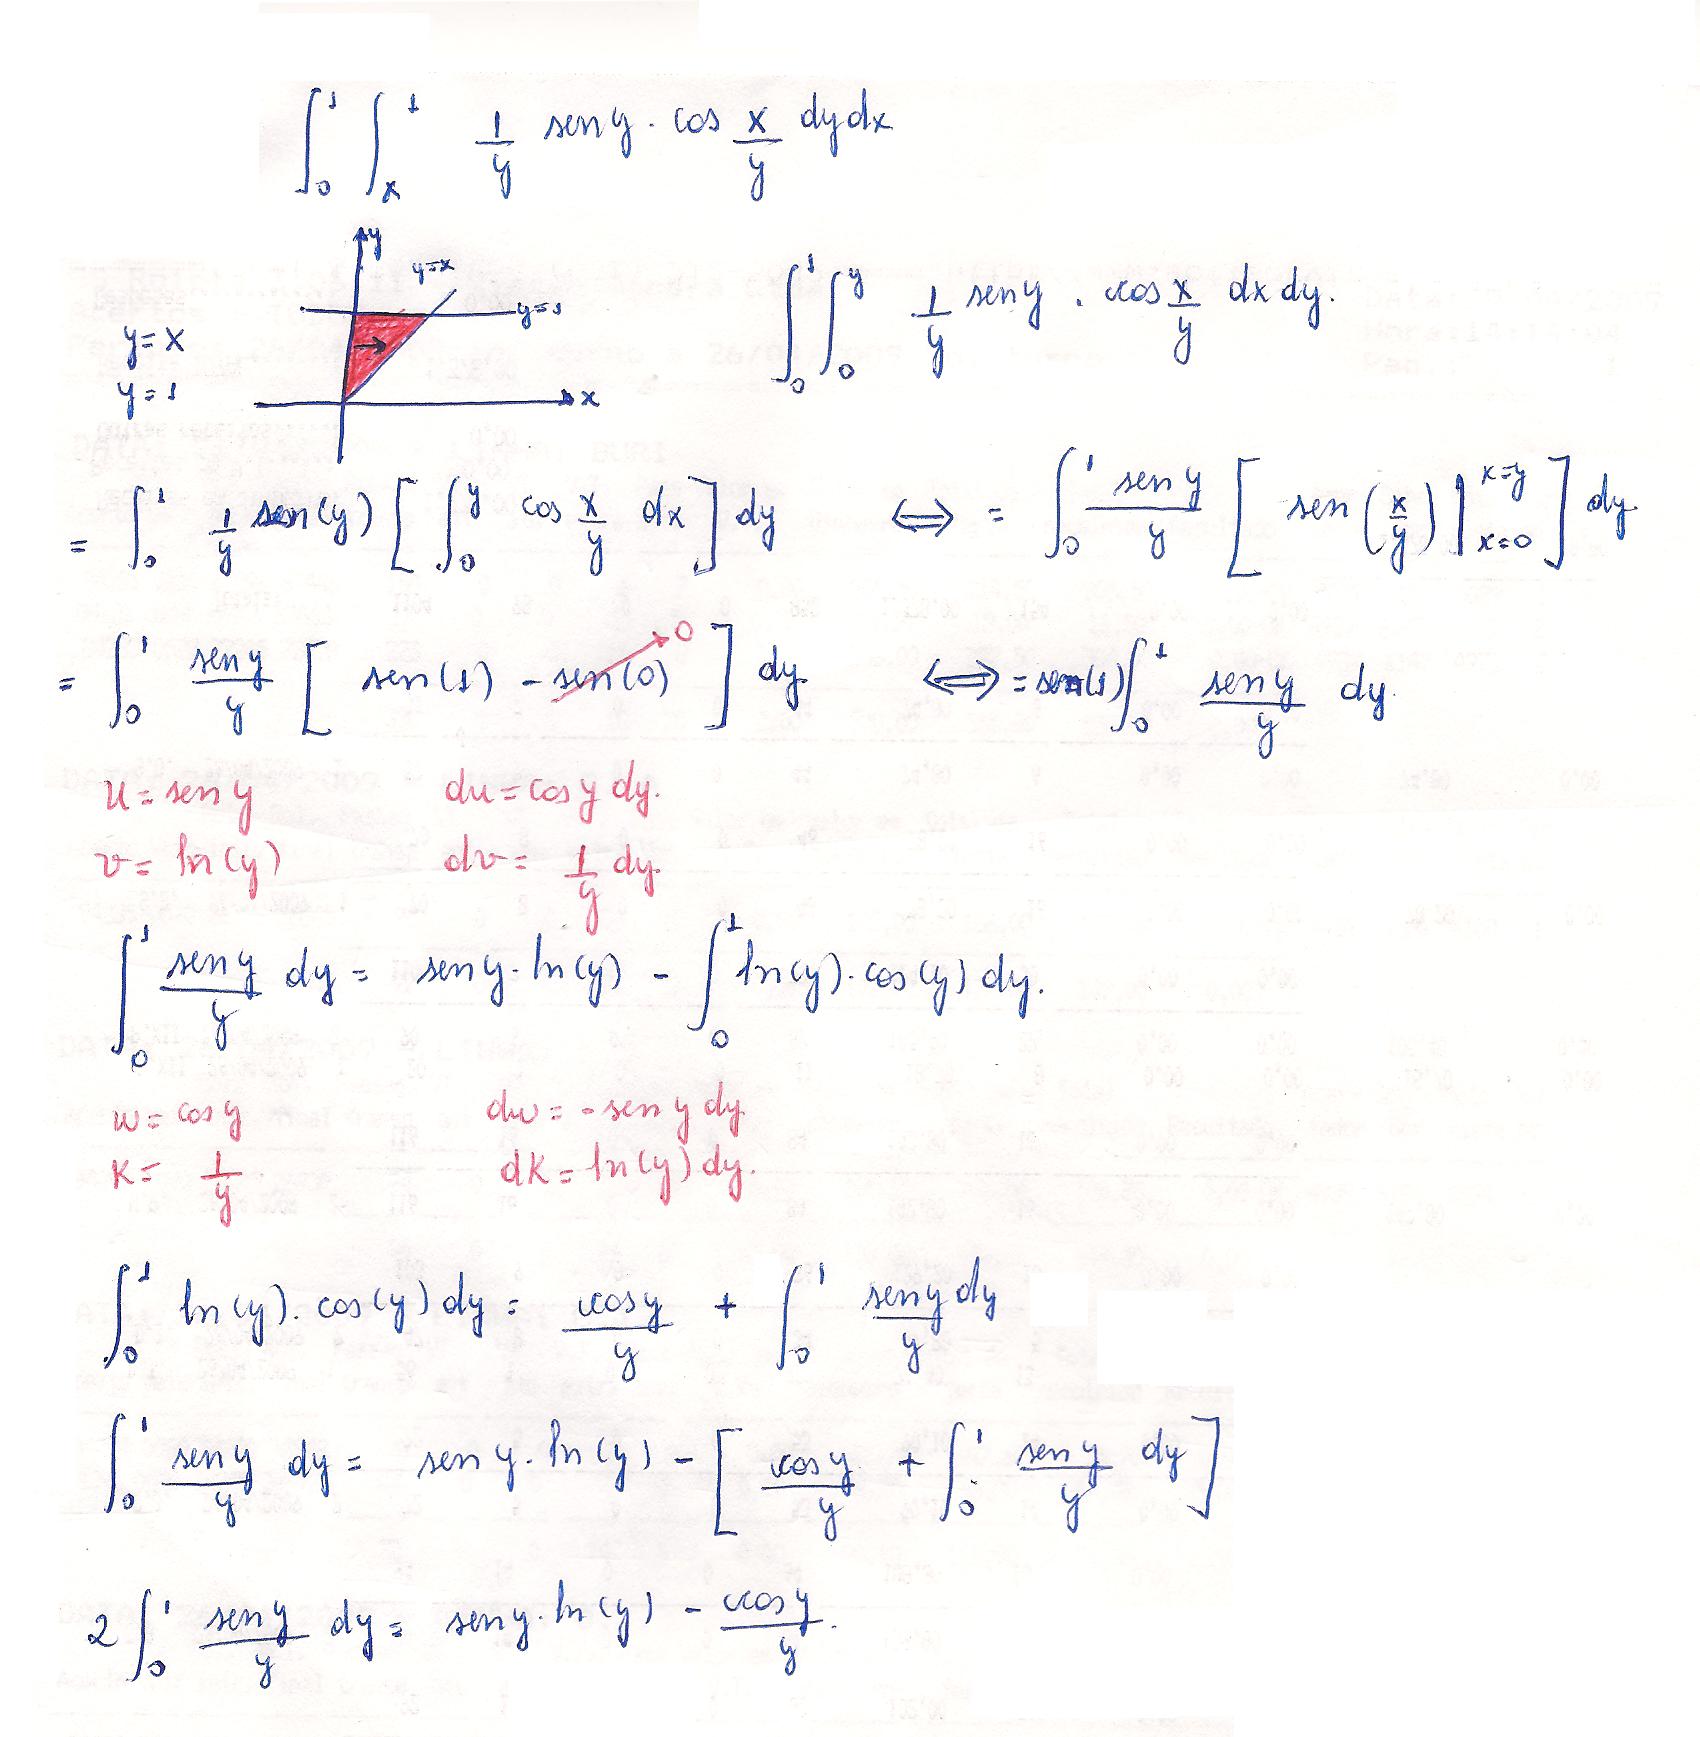 ∫₀¹ ∫ₓ¹ 1/y sen y · cos x/y dy dx
y
y=x
y=1
x
y=x
y=1
∫₀¹ ∫₀ʸ 1/y sen y · cos x/y dx dy.
= ∫₀¹ 1/y sen(y) [ ∫₀ʸ cos x/y dx ] dy ⟺ = ∫₀¹ sen y/y [ sen (x/y) | x=y x=0 ] dy.
= ∫₀¹ sen y/y [ sen(1) - sen(0) → 0 ] dy. ⟺ = sen(1) ∫₀¹ sen y/y dy.
u = sen y du = cos y dy.
v = ln(y) dv = 1/y dy.
∫₀¹ sen y/y dy = sen y · ln(y) - ∫₀¹ ln(y) · cos(y) dy.
w = cos y dw = - sen y dy
K = 1/y dK = ln(y) dy.
∫₀¹ ln(y) · cos(y) dy = cos y/y + ∫₀¹ sen y/y dy
∫₀¹ sen y/y dy = sen y · ln(y) - [ cos y/y + ∫₀¹ sen y/y dy ]
2 ∫₀¹ sen y/y dy = sen y · ln(y) - cos y/y.